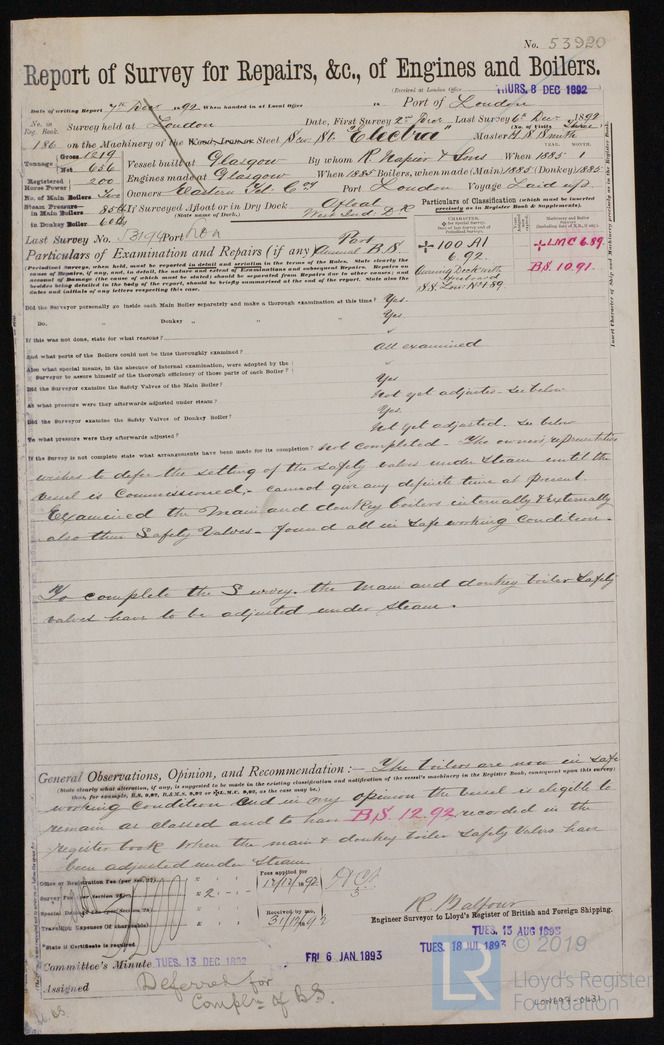 No. 53920
Report of Survey for Repairs, &c., of Engines and Boilers.
(Received at London Office THURS. 8 DEC 1892
Date of writing Report 7th Dec 1892 When handed in at Local Office " Port of London
No. in Reg. Book. Survey held at London Date, First Survey 2nd Dec Last Survey 6th Dec 1892
(No. of Visits Three)
186 on the Machinery of the Wood, Iron or Steel Scw St. "Electra" Master
Tonnage Gross 1219 Net 656
Vessel built at Glasgow By whom R Napier & Sons When 1885 1
YEAR. MONTH.
Registered Horse Power 200 Engines made at Glasgow When 1885 Boilers, when made (Main) 1885 (Donkey) 1885
No. of Main Boilers Two Owners Eastern Tel. Coy Port London Voyage Laid up
Steam Pressure in Main Boilers 85 lb If Surveyed Afloat or in Dry Dock Afloat
(State name of Dock.) West Ind. Dk
in Donkey Boiler 60 lb
Particulars of Classification (which must be inserted precisely as in Register Book & Supplements).
CHARACTER.
Machinery and Boiler Surveys
Last Survey No. Port
✠ 100 A1
6.92
✠ LMC 6.89
B.S. 10.91.
Particulars of Examination and Repairs (if any) Part Annual B.S.
(Periodical Surveys, when held, must be reported in detail and seriatim in the terms of the Rules. State clearly the
S.S. Lon. No1 89.
Did the Surveyor personally go inside each Main Boiler separately and make a thorough examination at this time? Yes.
Do. Donkey " " " Yes.
If this was not done, state for what reasons?
And what parts of the Boilers could not be thoroughly examined? All examined
Also what special means, in the absence of internal examination, were adopted by the
Surveyor to assure himself of the thorough efficiency of those parts of each Boiler?
Did the Surveyor examine the Safety Valves of the Main Boiler? Yes
At what pressure were they afterwards adjusted under steam? Not yet adjusted - see below
Did the Surveyor examine the Safety Valves of Donkey Boiler? Yes.
To what pressure were they afterwards adjusted? Not yet adjusted. See below
If the Survey is not complete state what arrangements have been made for its completion? Not completed - The owners representative
wishes to defer the setting of the safety valves under steam until the
vessel is Commissioned, - cannot give any definite time at present.
Examined the Main and donkey boilers internally & Externally
also their Safety Valves - found all in safe working condition.
To complete the Survey. the Main and donkey boiler Safety
valves have to be adjusted under steam.
General Observations, Opinion, and Recommendation:— The boilers are now in safe
(State clearly what alteration, if any, is suggested to be made in the existing classification and notification of the vessel's machinery in the Register Book, consequent upon this survey;
working condition and in my opinion the vessel is eligible to
remain as classed and to have B.S. 12.92 recorded in the
register book when the main & donkey boiler Safety Valves have
been adjusted under steam.
Office or Registration Fee (per Sec. 27)
Survey Fee (per Section 28) " 2 . - . -
Travelling Expenses (if chargeable)
Fees applied for
12/12/1892
Received by me,
31/12/1892
R Balfour
Engineer Surveyor to Lloyd's Register of British and Foreign Shipping.
*State if Certificate is required
TUES. 15 AUG 1893
TUES. 18 JUL 1893
Committee's Minute TUES. 13 DEC 1892 FRI 6 JAN 1893
Assigned Deferred for
Compln of B.S.
© 2019
LR
Lloyd's Register
Foundation
LON697-0431